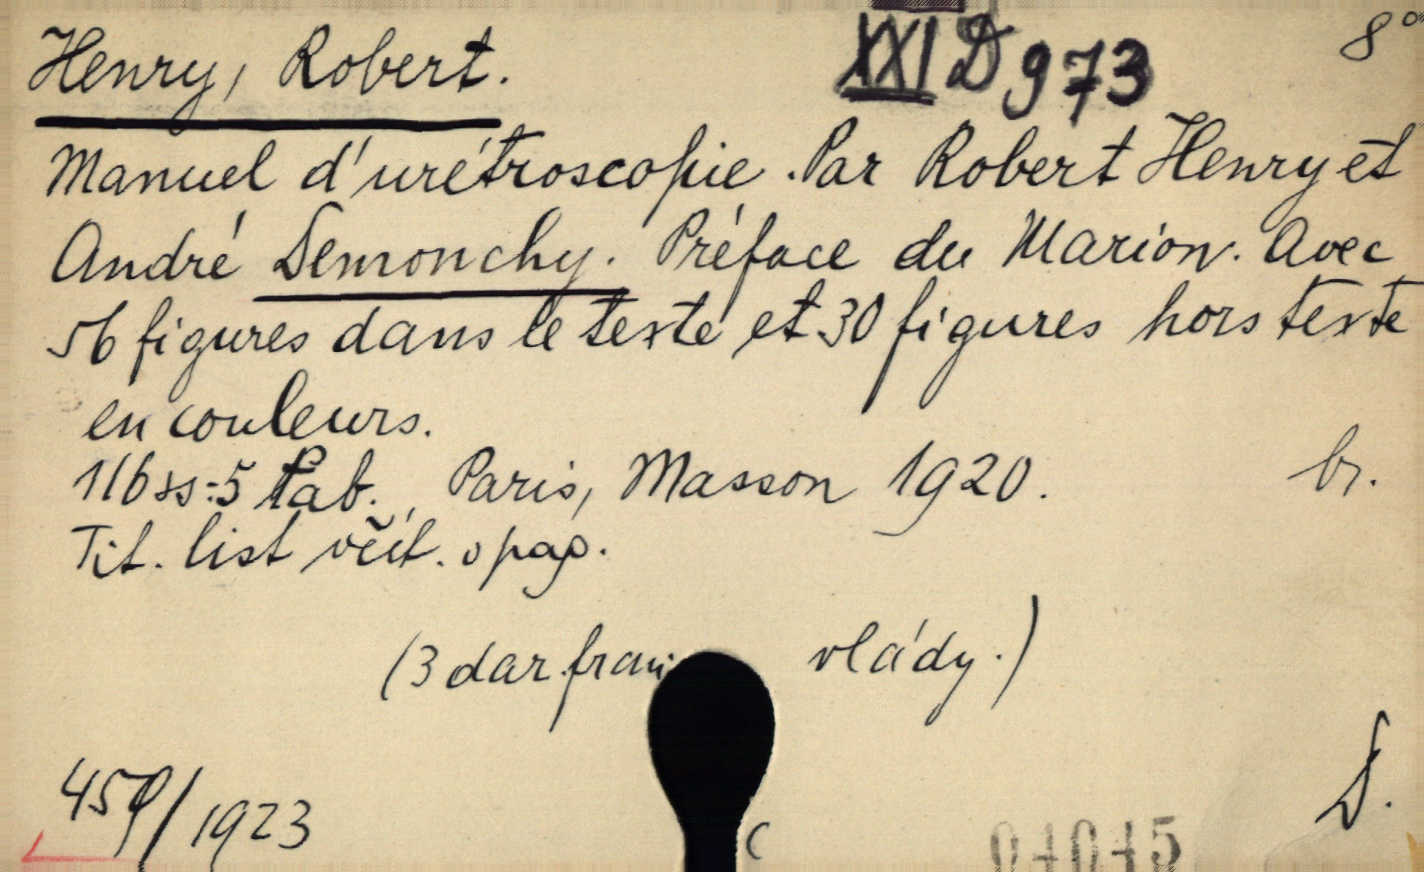 Henry, Robert. XXI D 973 8°
Manuel d'urétroscopie. Par Robert Henry et
André Demonchy. Préface du Marion. Avec
56 figures dans le texte et 30 figures hors texte
en couleurs.
116 ss. 5 tab. Paris, Masson 1920. br.
Tit. list včít. v pag.
(3 dar. franc vlády.)
D.
/1923